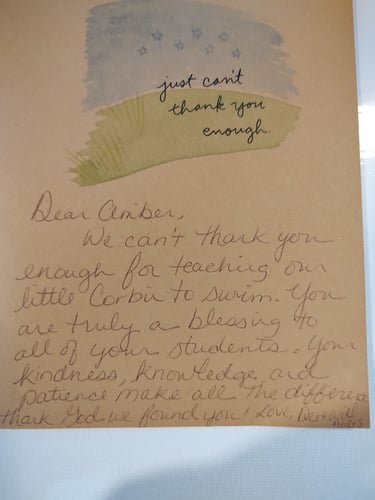 just can't
thank you
enough.
Dear Amber,
We can't thank you
enough for teaching our
little Corbin to swim. You
are truly a blessing to
all of your students. Your
kindness, knowledge and
patience make all the difference
thank God we found you! Love,